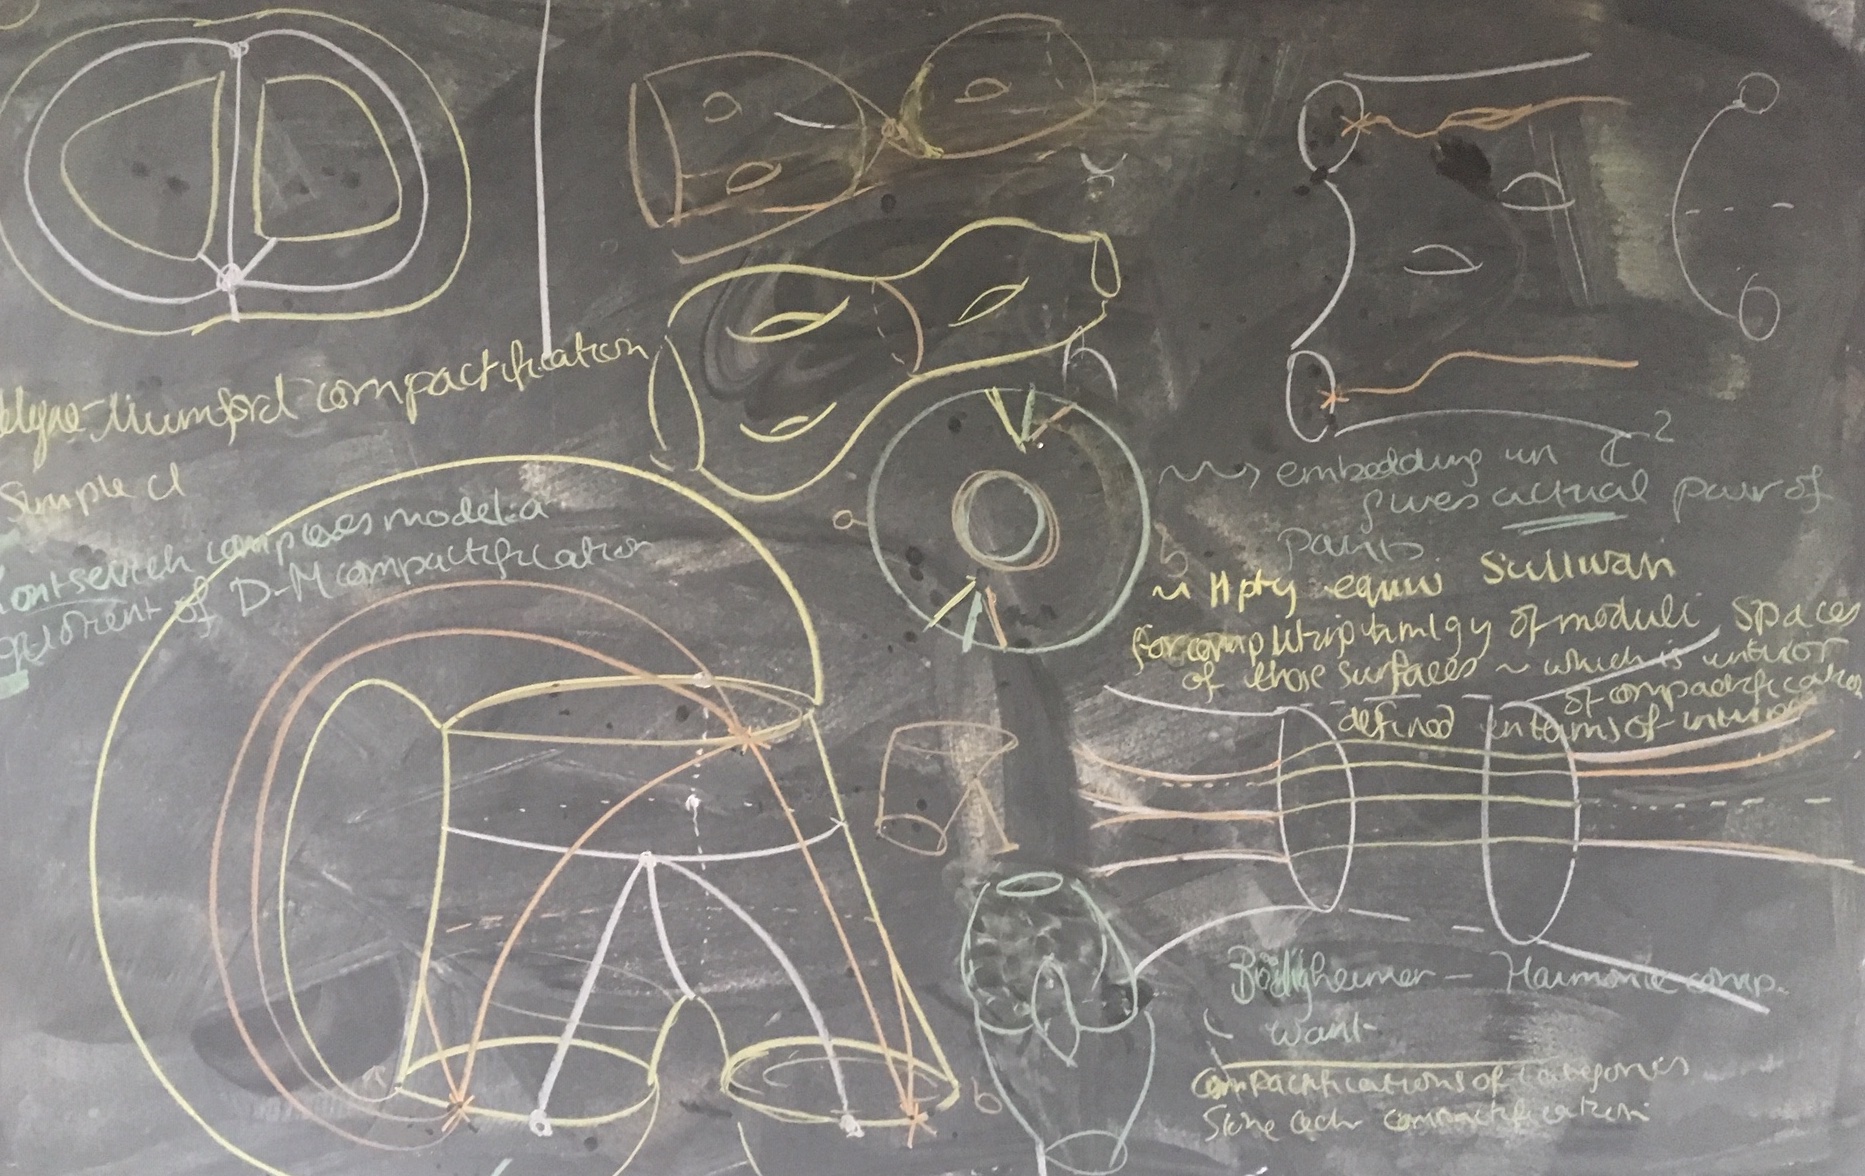 compactification
Simple
complexes model a
of D-M compactification
a
embedding in ℂ²
gives actual pair of
pants
~ Hpty equiv Sullivan
for computing hmlgy of moduli spaces
of those surfaces ~ which is interior
of compactification
defined in terms of
b
Bödigheimer - Harmonic comp.
want
compactifications of categories
Stone Cech compactification